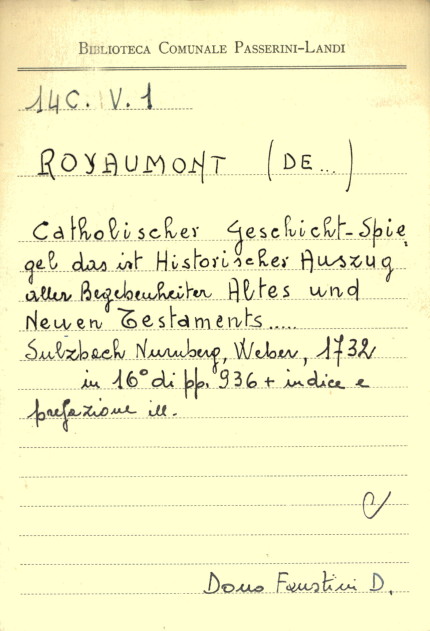 BIBLIOTECA COMUNALE PASSERINI-LANDI
14C. V. 1
ROYAUMONT (DE...)
Catholischer Geschicht-Spie
gel das ist Historischer Auszug
aller Begebenheiten Altes und
Neuen Testaments.....
Sulzbach Nurnberg, Weber, 1732
in 16° di pp. 936 + indice e
prefazione ill.
Dono Faustini D.